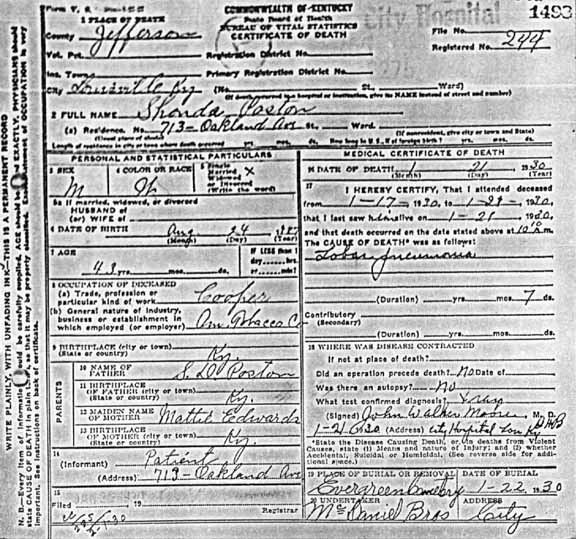 COMMONWEALTH OF KENTUCKY
State Board of Health
BUREAU OF VITAL STATISTICS
CERTIFICATE OF DEATH
City Hospital
1493
1 PLACE OF DEATH
County Jefferson
File No.
Registered No. 244
Vot. Pct. Registration District No.
Inc. Town Primary Registration District No.
City Louisville Ky (No. St., Ward)
(If death occurred in a hospital or institution, give its NAME instead of street and number)
2 FULL NAME Shonda Poston
(a) Residence. No. 713 - Oakland Ave St., Ward.
(Usual place of abode) (If nonresident, give city or town and State)
Length of residence in city or town where death occurred yrs. mos. ds. How long in U. S., if of foreign birth? yrs. mos. ds.
PERSONAL AND STATISTICAL PARTICULARS
3 SEX M
4 COLOR OR RACE W
5 Single
Married X
Widowed
or Divorced
(Write the word)
5a If married, widowed, or divorced
HUSBAND of
(or) WIFE of
6 DATE OF BIRTH Aug 24
(Month) (Day) (Year)
7 AGE
43 yrs. mos. ds.
IF LESS than 1
day hrs.
or min.
8 OCCUPATION OF DECEASED
(a) Trade, profession or
particular kind of work Cooper
(b) General nature of industry,
business or establishment in
which employed (or employer) Am. Tobacco Co
9 BIRTHPLACE (city or town) Ky.
(State or country)
PARENTS
10 NAME OF
FATHER S. D. Poston
11 BIRTHPLACE
OF FATHER (city or town) Ky.
(State or country)
12 MAIDEN NAME
OF MOTHER Mattie Edwards
13 BIRTHPLACE
OF MOTHER (city or town) Ky.
(State or country)
14
(Informant) Patient
(Address) 713 - Oakland Ave
15
Filed 19
Registrar
MEDICAL CERTIFICATE OF DEATH
16 DATE OF DEATH 1 21 1930
(Month) (Day) (Year)
17 I HEREBY CERTIFY, That I attended deceased
from 1-17-, 1930, to 1-21-, 1930,
that I last saw him alive on 1-21, 1930,
and that death occurred on the date stated above at 10 m.
The CAUSE OF DEATH* was as follows:
Lobar Pneumonia
(Duration) yrs. mos. 7 ds.
Contributory
(Secondary)
(Duration) yrs. mos. ds.
18 WHERE WAS DISEASE CONTRACTED
If not at place of death?
Did an operation precede death? No Date of
Was there an autopsy? No
What test confirmed diagnosis? X-ray
(Signed) John Walker Moore, M. D.
1-21, 1930 (Address) City Hospital Lou Ky
*State the Disease Causing Death, or, in deaths from Violent
Causes, state (1) Means and nature of Injury; and (2) whether
Accidental, Suicidal, or Homicidal. (See reverse side for addi-
tional space.)
19 PLACE OF BURIAL OR REMOVAL DATE OF BURIAL
Evergreen Cemetery 1-22 1930
20 UNDERTAKER ADDRESS
Mc Daniel Bros City
WRITE PLAINLY, WITH UNFADING INK—THIS IS A PERMANENT RECORD